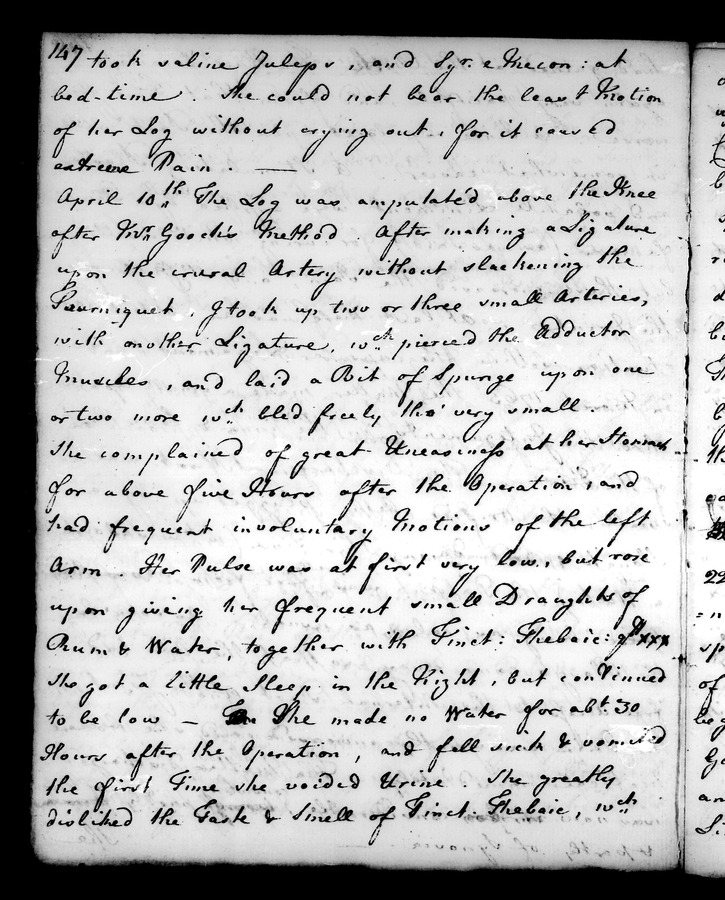 147 took saline Juleps, and Syr. e Mecon: at
bed-time. She could not bear the least Motion
of her Leg without crying out, for it caused
extreme Pain. —
April 10th. The Leg was amputated above the Knee
after Mr. Gooch's Method. After making a Ligature
upon the crural Artery without slackening the
Tourniquet, I took up two or three small Arteries,
with another Ligature, wch. pierced the Adductor
Muscles, and laid a Bit of Spunge upon one
or two more wch. bled freely tho' very small.
She complained of great Uneasiness at her Stomach
for above five Hours after the Operation, and
had frequent involuntary Motions of the left
Arm. Her Pulse was at first very low, but rose
upon giving her frequent small Draughts of
Rum & Water, together with Tinct: Thebaic: gtt xxx
She got a little Sleep in the Night, but continued
to be low — She made no Water for abt. 30
Hours after the Operation, and fell sick & vomited
the first Time she voided Urine. She greatly
disliked the Taste & Smell of Tinct. Thebaic, wch.